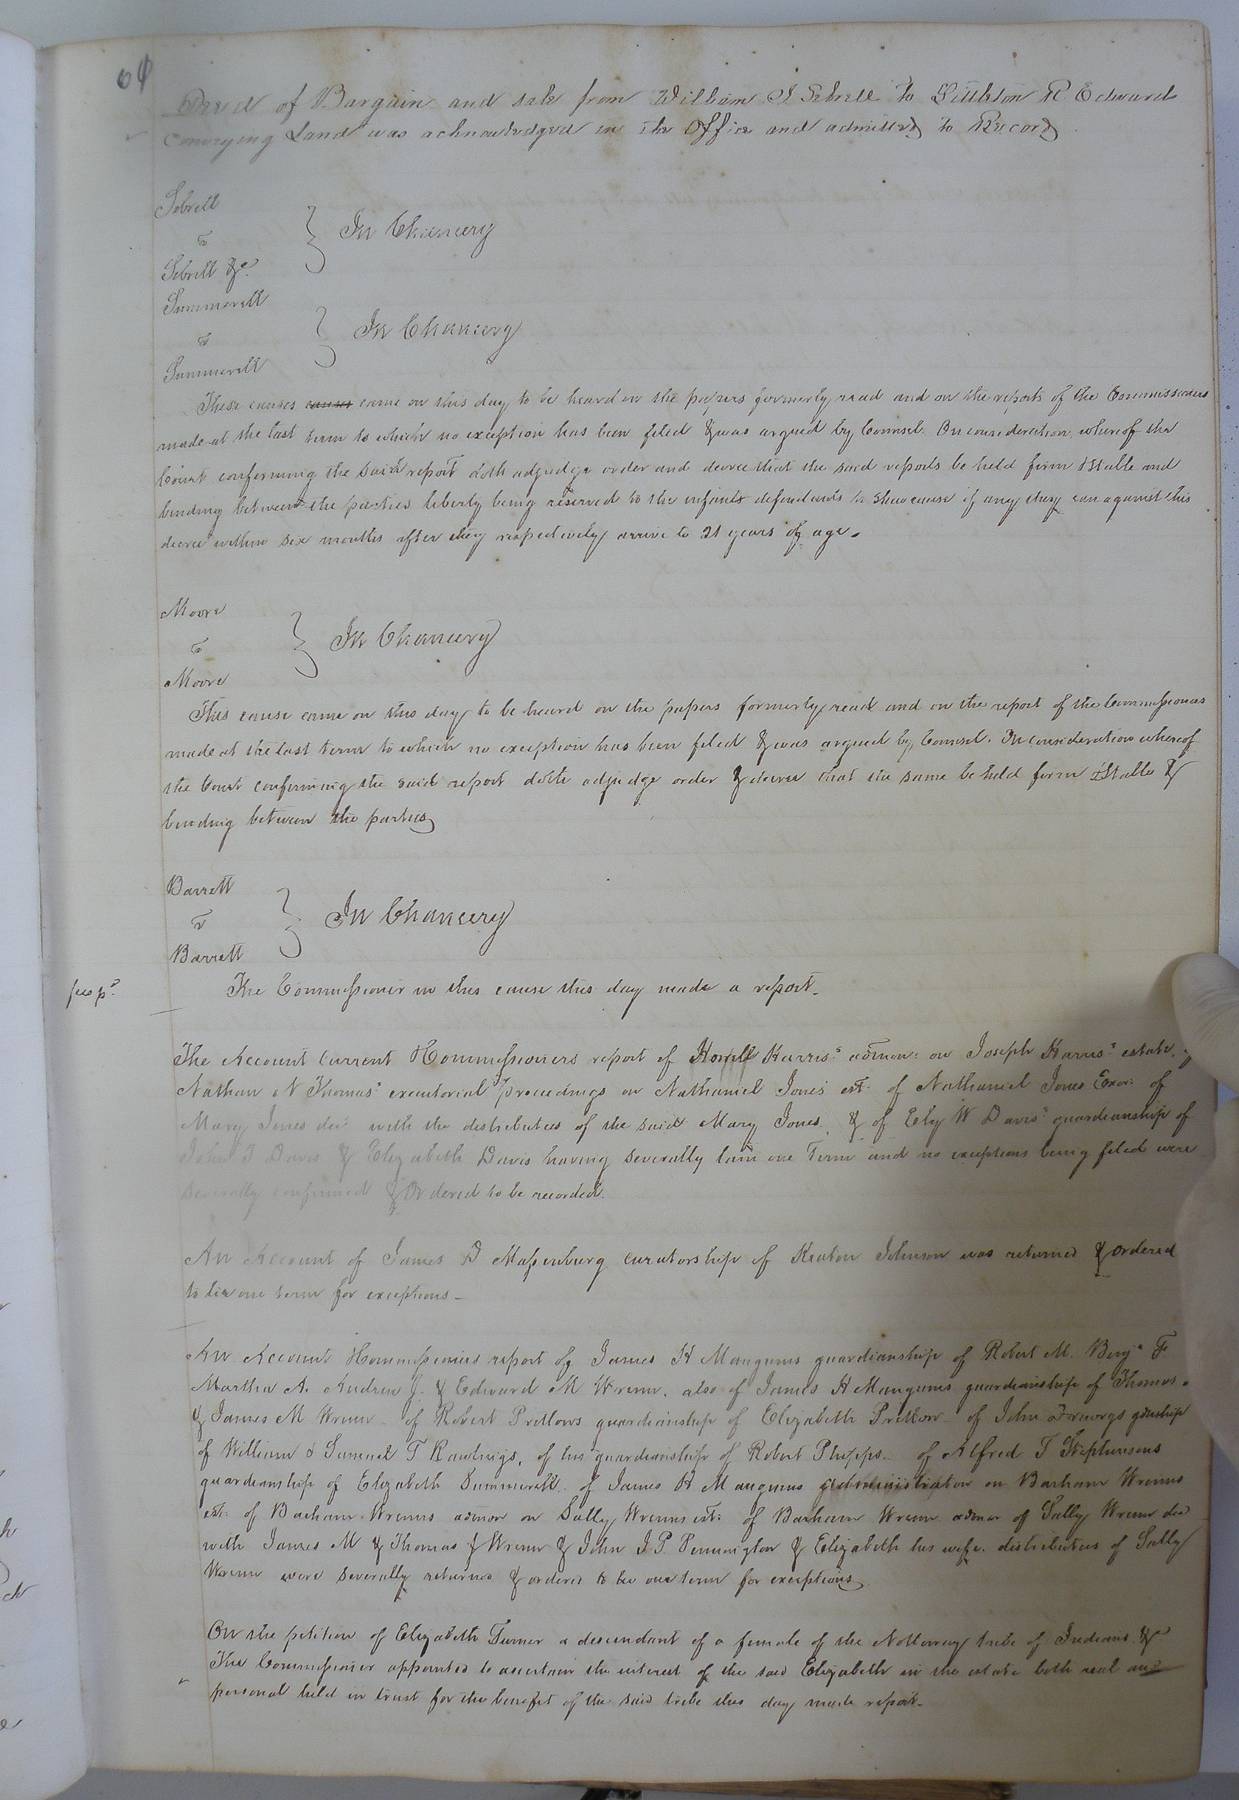 64
Deed of Bargain and sale from William J Sebrell to Littleton R Edwards
conveying Land was acknowledged in the Office and admitted to Record
Sebrell
v
Sebrell &c.
} In Chancery
Summerell
v
Summerell
} In Chancery
These causes causes came on this day to be heard on the papers formerly read and on the reports of the Commissioners
made at the last term to which no exception has been filed & was argued by Counsel. On consideration whereof the
Court confirming the said report doth adjudge order and decree that the said reports be held firm & stable and
binding between the parties liberty being reserved to the infants defendants to shew cause if any they can against this
decree within six months after they respectively arrive to 21 years of age.
Moore
v
Moore
} In Chancery
This cause came on this day to be heard on the papers formerly read and on the report of the Commissioners
made at the last term to which no exception has been filed & was argued by Counsel. On consideration whereof
the Court confirming the said report doth adjudge order & decree that the same be held firm & Stable &
binding between the parties
Barrett
v
Barrett
} In Chancery
fees pd.
The Commissioner in this cause this day made a report.
The Account Current & Commissioners report of Howell Harris' admon: on Joseph Harris' estate, of
Nathan N Thomas' executorial proceedings on Nathaniel Jones est. of Nathaniel Jones Exor: of
Mary Jones dec. with the distributees of the said Mary Jones, & of Ely W Davis' guardianship of
John T Davis & Elizabeth Davis having severally lain one Term and no exceptions being filed were
severally confirmed & Ordered to be recorded.
An Account of James D Massenburg curatorship of Keaton Johnson was returned & ordered
to lie one term for exceptions -
An Account & Commissioners report of James H Mangums guardianship of Robert M. Benja F
Martha A. Andrew J. & Edward M Wrenn, also of James H Mangums guardianship of Thomas.
& James M Wrenn of Robert Pretlows guardianship of Elizabeth Pretlow of John gdnship
of William & Samuel T Rawlings, of his guardianship of Robert Phipps of Alfred T Stephensons
guardianship of Elizabeth Summerell of James H Mangums administration on Barham Wrenns
est: of Barham Wrenns admor on Sally Wrenns est: of Barham Wrenn admor of Sally Wrenn dec
with James M & Thomas J Wrenn & John J. P. Pennington & Elizabeth his wife distributees of Sally
Wrenn were severally returned & ordered to lie one term for exceptions
On the petition of Elizabeth Turner a descendant of a female of the Nottoway tribe of Indians &c
The Commissioner appointed to ascertain the interest of the said Elizabeth in the estate both real and
personal held in trust for the benefit of the said tribe this day made report.